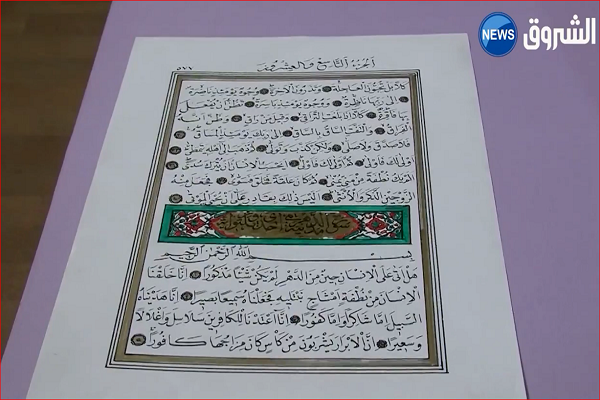 الشروق NEWS
الجزء التاسع والعشرون ٥٧٧
كلا بل تحبون العاجلة وتذرون الاخرة وجوه يومئذ ناضرة
الى ربها ناظرة ووجوه يومئذ باسرة تظن ان يفعل
بها فاقرة كلا اذا بلغت التراقي وقيل من راق وظن انه
الفراق والتفت الساق بالساق الى ربك يومئذ المساق
فلا صدق ولا صلى ولكن كذب وتولى ثم ذهب الى اهله يتمطى
اولى لك فاولى ثم اولى لك فاولى ايحسب الانسان ان يترك سدى
الم يك نطفة من مني يمنى ثم كان علقة فخلق فسوى فجعل منه
الزوجين الذكر والانثى اليس ذلك بقادر على ان يحيي الموتى
سورة
بسم الله الرحمن الرحيم
هل اتى على الانسان حين من الدهر لم يكن شيئا مذكورا انا خلقنا
الانسان من نطفة امشاج نبتليه فجعلناه سميعا بصيرا انا هديناه
السبيل اما شاكرا واما كفورا انا اعتدنا للكافرين سلاسل واغلالا
وسعيرا ان الابرار يشربون من كاس كان مزاجها كافورا